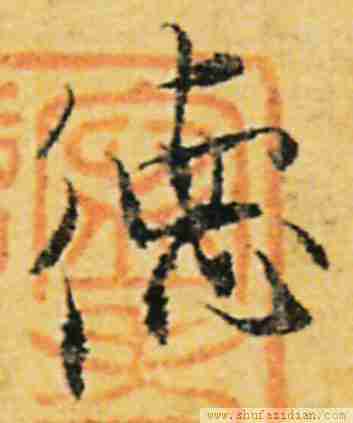 德
www.shufazidian.com